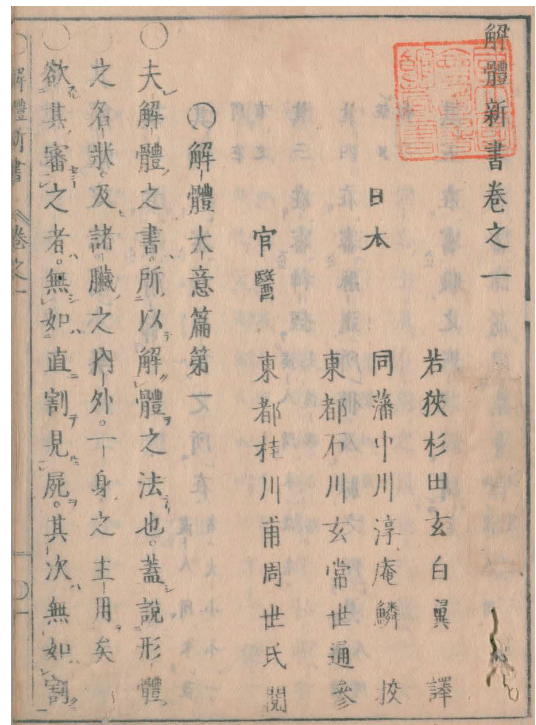 解體新書卷之一
若狹杉田玄白翼譯
日本
同藩中川淳庵鱗挍
東都石川玄常世通參
官醫
東都桂川甫周世氏閲
〇解體大意篇第一
夫解體之書。所以解體之法也。蓋說形體
之名狀。及諸臟之內外。一身之主用矣
欲其審之者。無如直割見屍。其次無如割
解體新書 卷之一